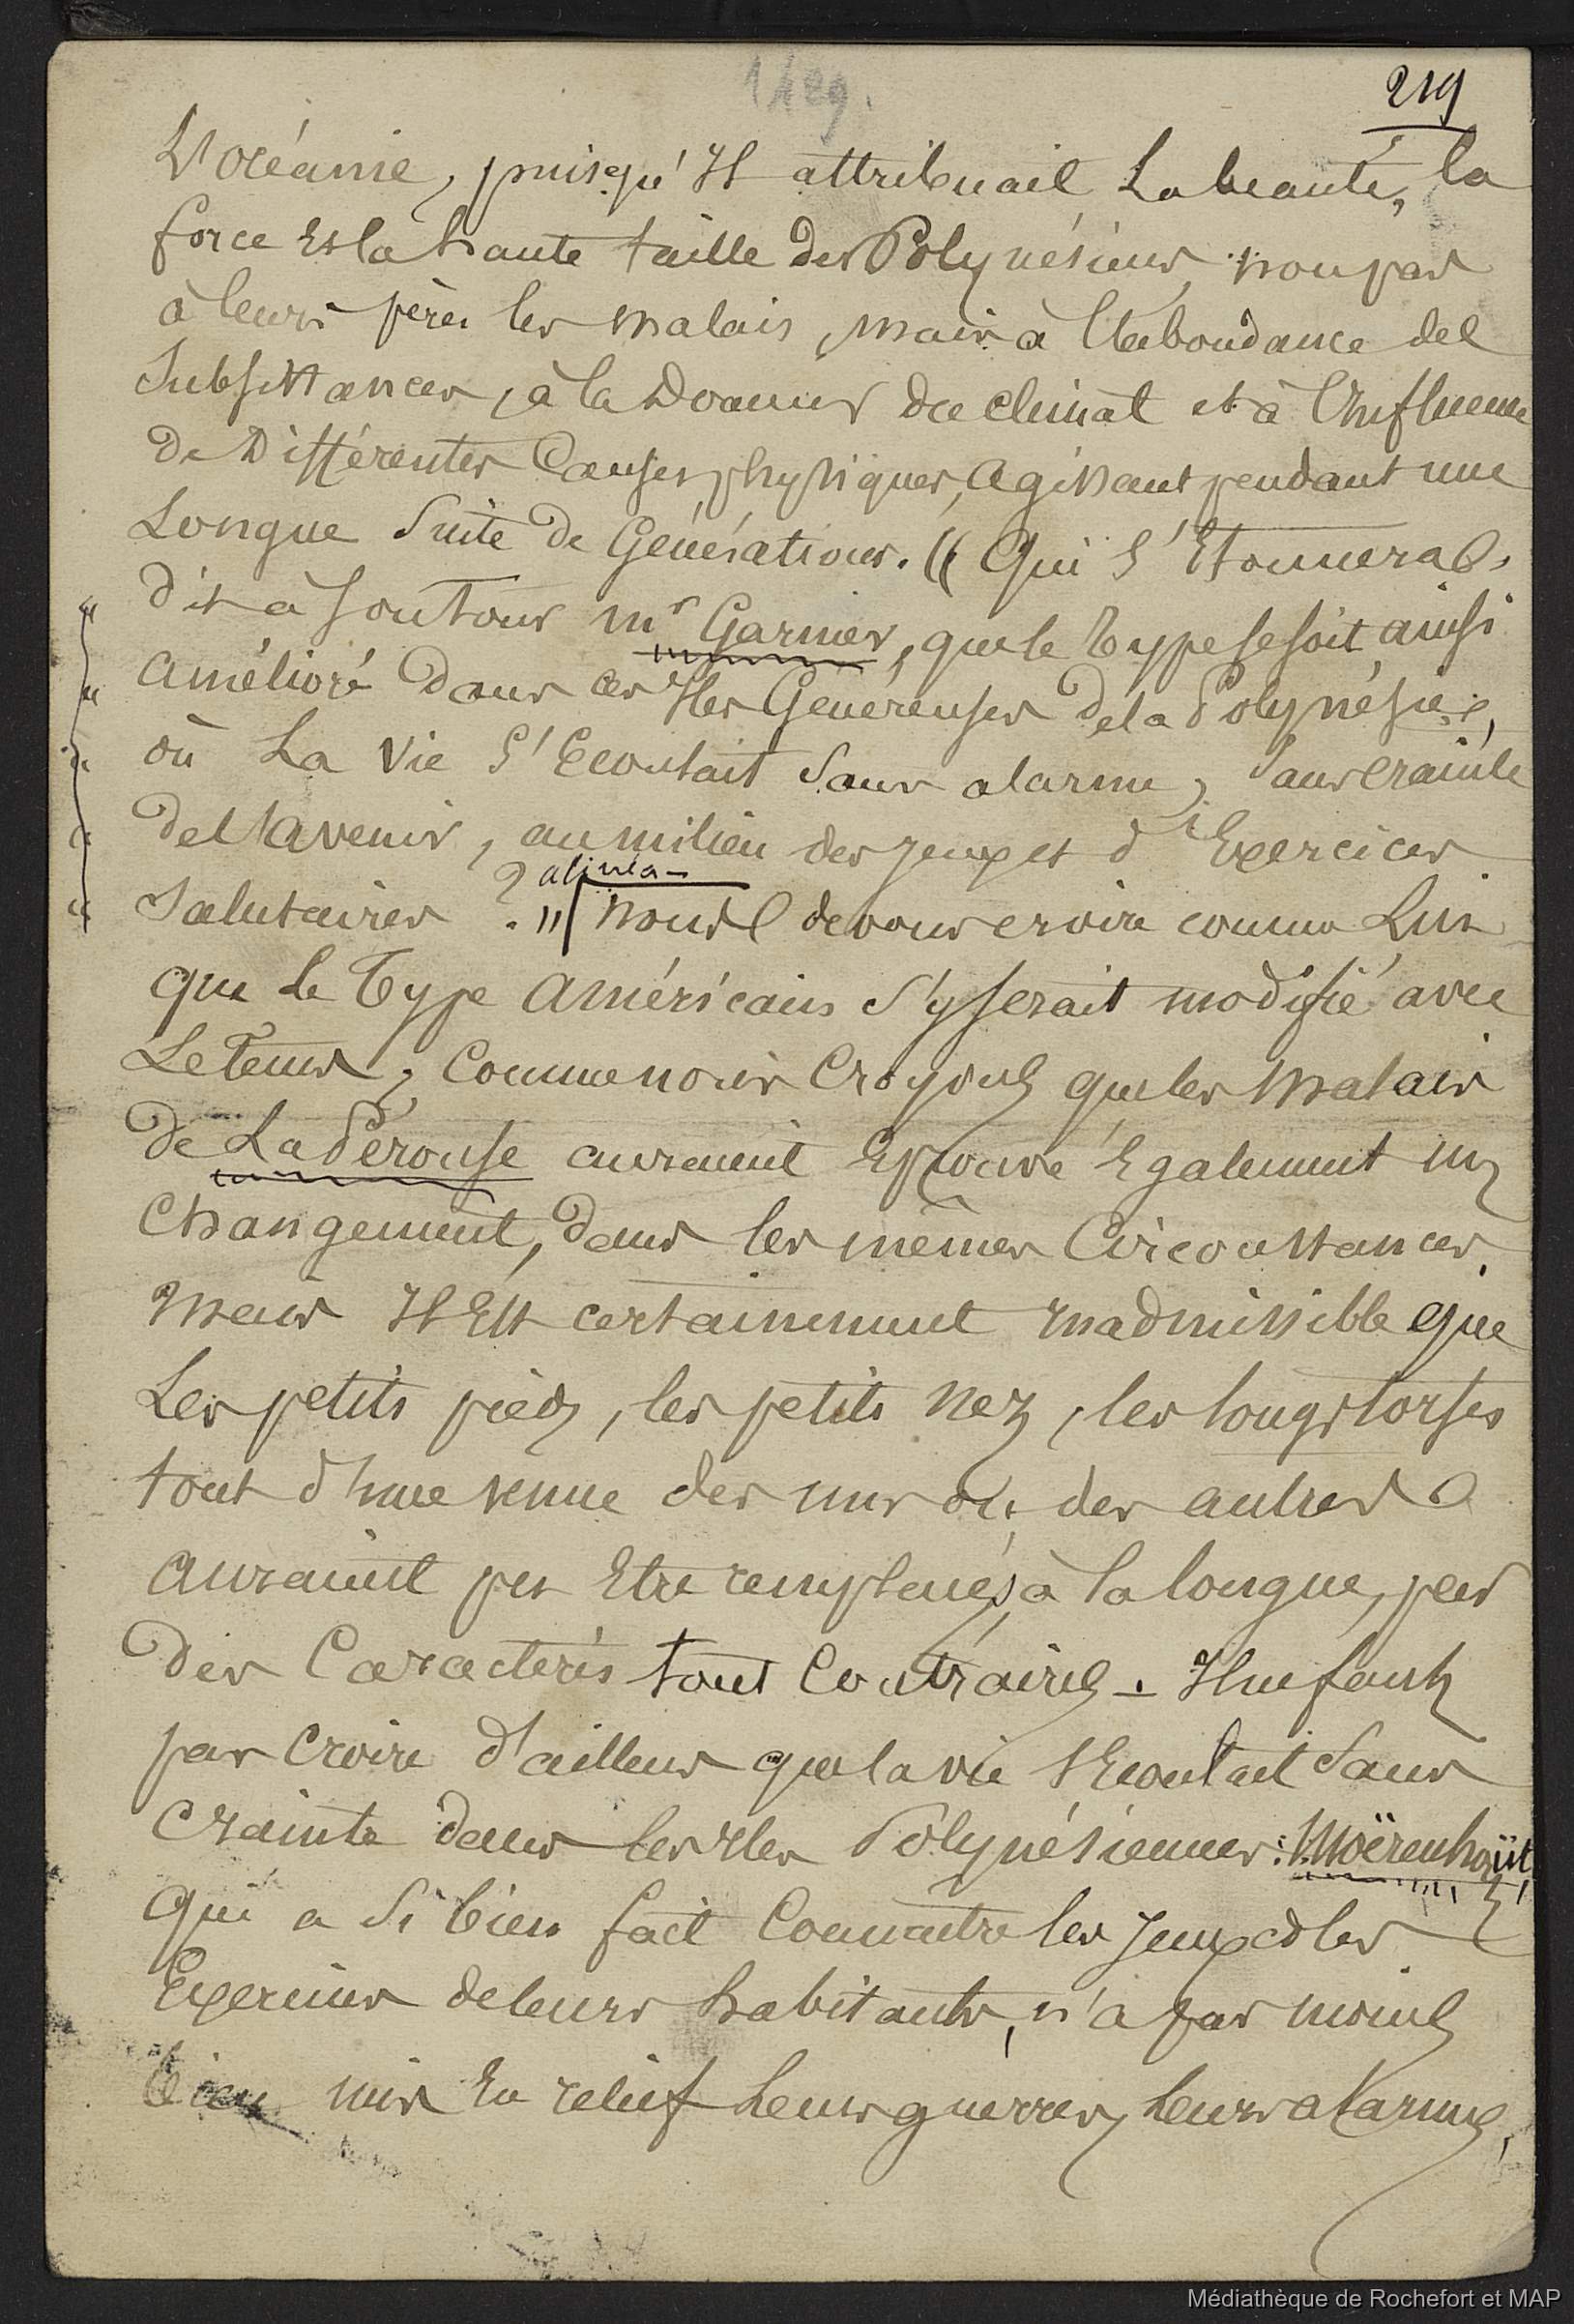 1429.
219
L'océanie, puisqu'Il attribuait La beauté, la
force Et la haute taille des Polynésiens, non pas
à leurs pères les malais, mais à l'abondance des
Subsistances, à la Douceur du climat et à l'Influence
de Différentes Causes physiques, agissant pendant une
Longue Suite de Générations. « Qui S'Etonnera,
dit à son tour mr Garnier, que le type se soit ainsi
amélioré dans ces Iles Généreuses de la Polynésie,
où La Vie S'Ecoulait Sans alarme, Sans crainte
de l'avenir, au milieu des jeux et d'Exercices
Salutaires ? » alinéa - nous devons croire comme Lui
que le Type américain S'y serait modifié avec
Le Tems, Comme nous Croyons que les malais
de La Pérouse auraient Eprouvé Egalement un
Changement, dans les mêmes Circonstances.
Mais Il Est certainement Inadmissible que
Les petits pieds, les petits nez, les longs torses
tout d'une venue des uns ou des autres
auraient pu Etre remplacés, à la longue, par
des Caractères tout Contraires. - Il ne faut
pas croire d'ailleurs que la vie S'Ecoulait Sans
Crainte dans les Iles Polynésiennes : Moërenhoüt,
qui a Si bien fait Connaitre les jeux et les
Exercices de leurs habitants, n'a pas moins
bien mis En relief Leurs guerres, Leurs alarmes,
Médiathèque de Rochefort et MAP